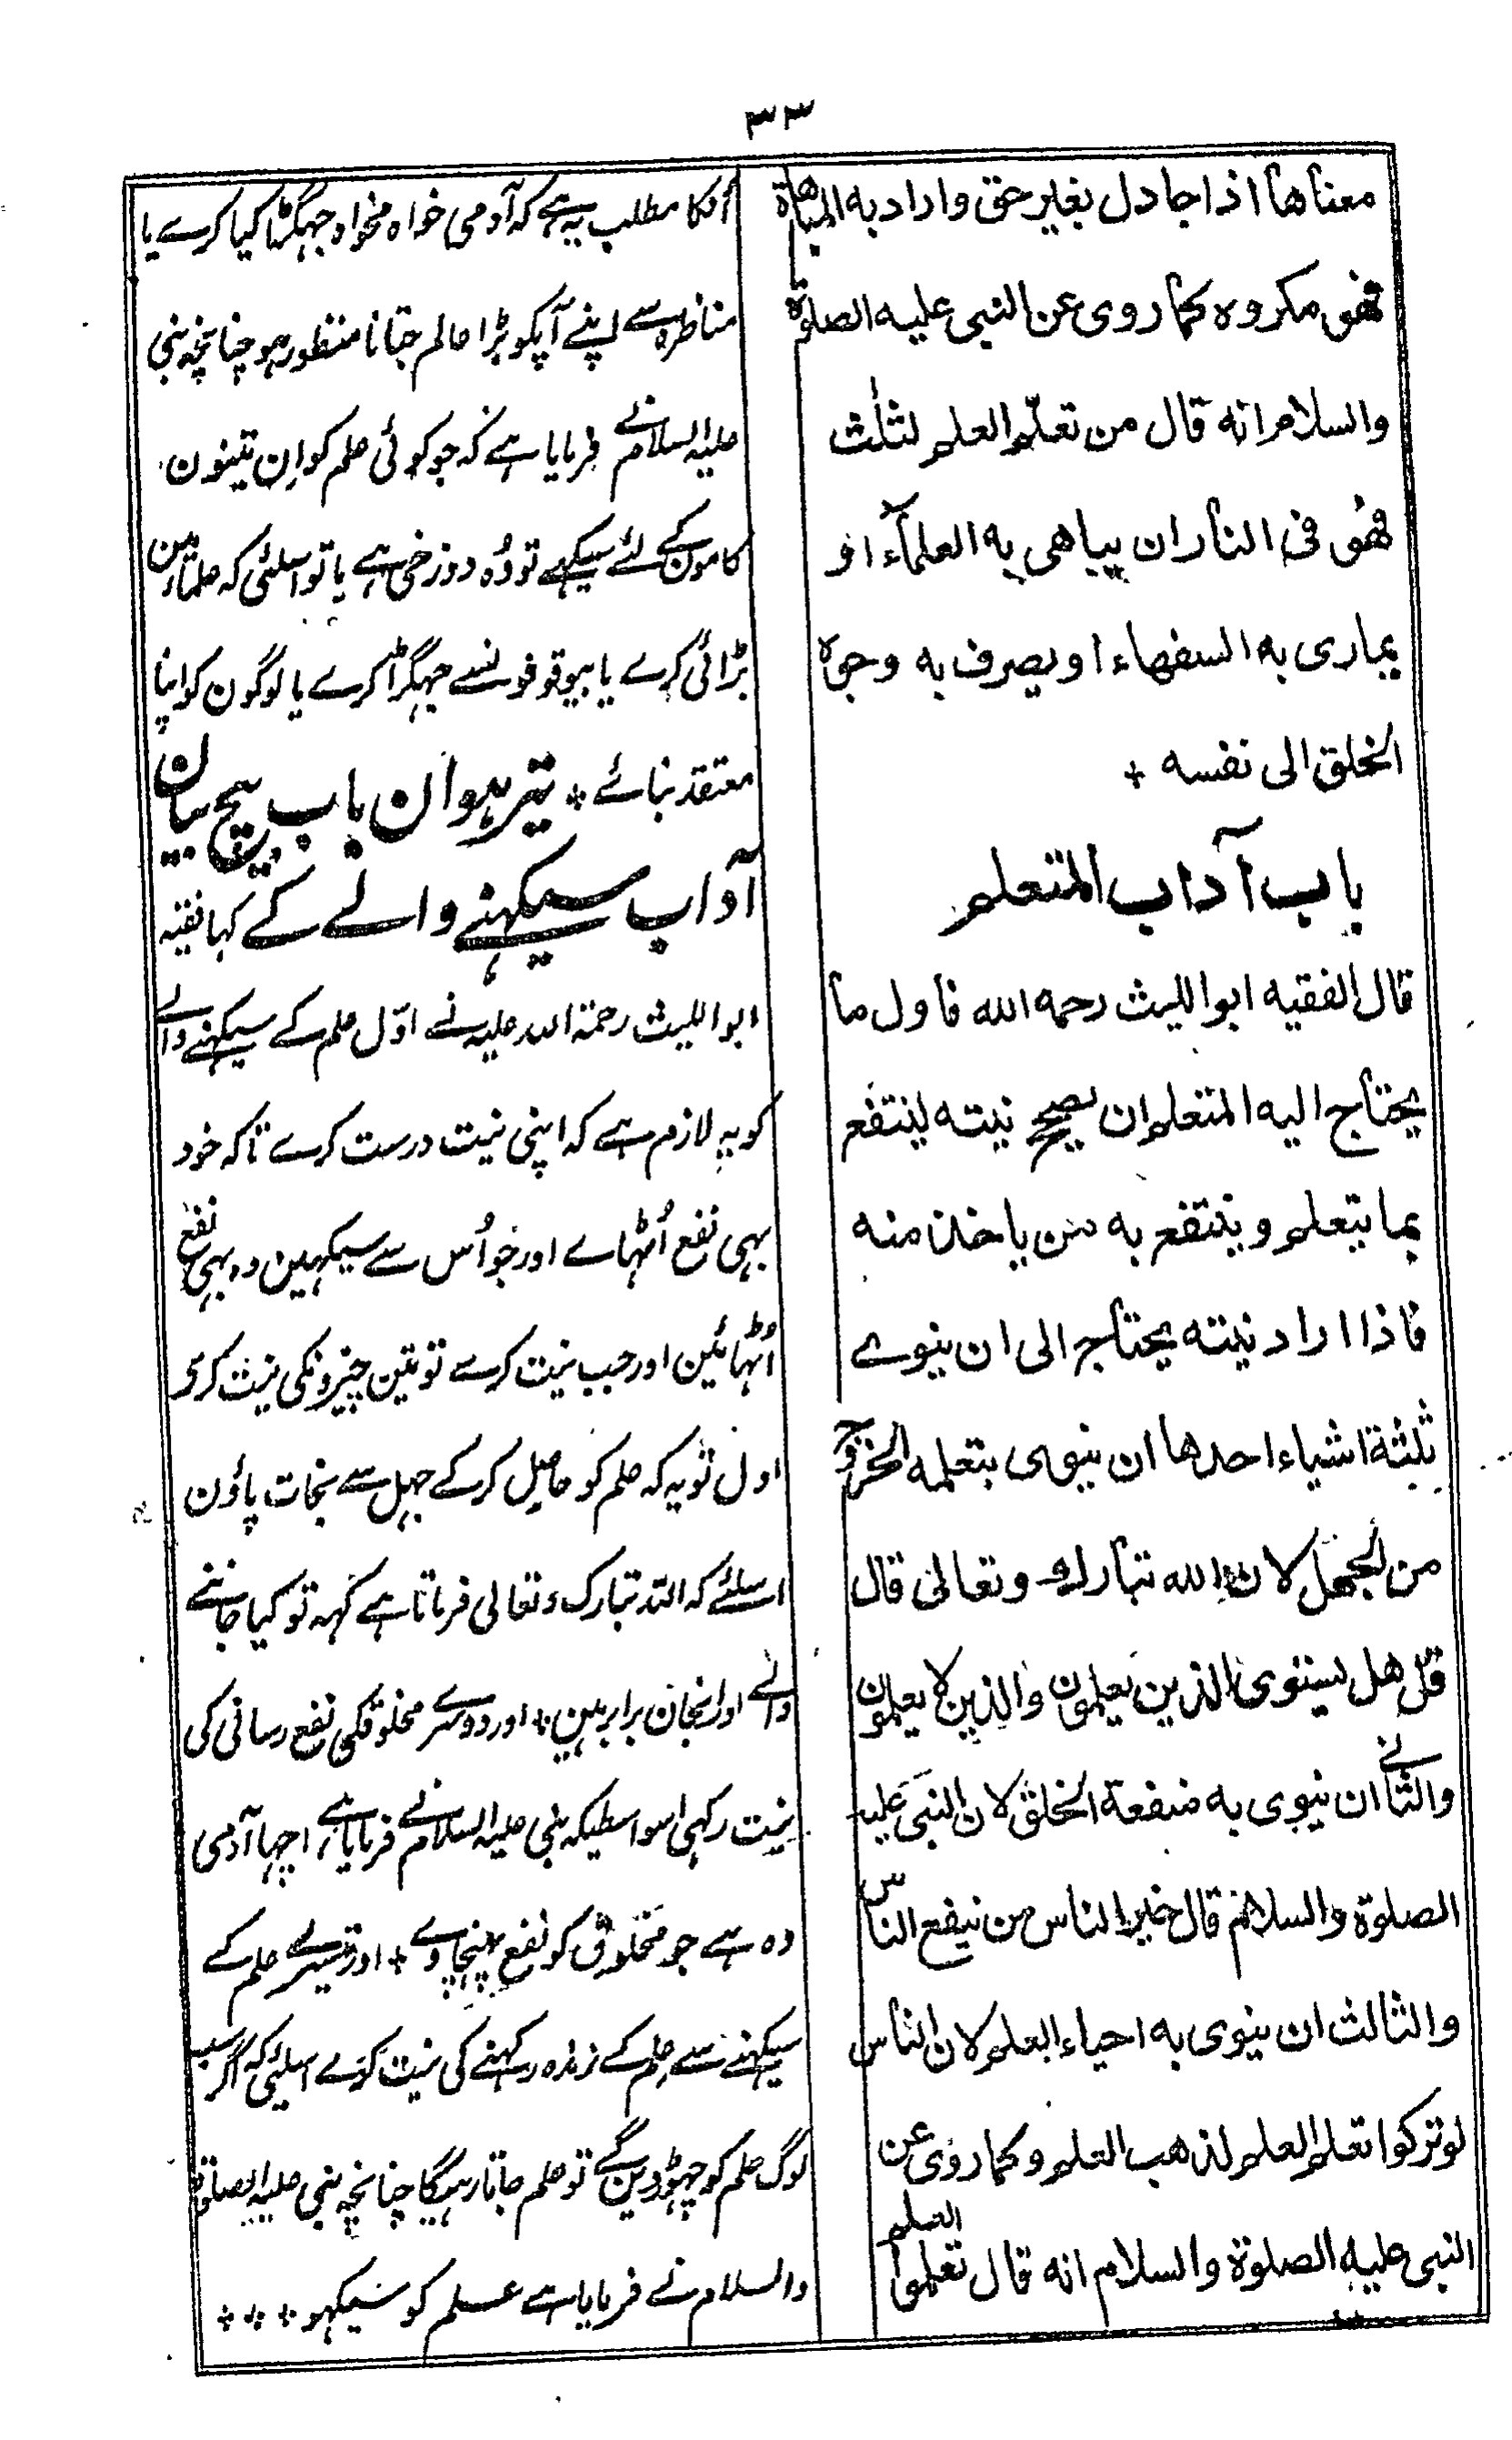 ٣٣
معناها اذا جادل بغير حق واراد به المباهاة
فهو مكروه كما روى عن النبى عليه الصلوة
والسلام انه قال من تعلّم العلم لثلٰث
فهو فى النار ان يباهى به العلمآء او
يمارى به السفهاء او يصرف به وجوه
الخلق الى نفسه +
باب آداب المتعلم
قال الفقيه ابو الليث رحمه الله فاول ما
يحتاج اليه المتعلم ان يصحح نيته لينتفع
بما يتعلم وينتفع به من ياخذ منه
فاذا اراد نيته يحتاج الى ان ينوے
ثلثة اشياء احدها ان ينوى بتعلمه الخروج
من الجهل لان الله تبارك وتعالى قال
قل هل يستوى الذين يعلمون والذين لا يعلمون
والثانے ان ينوى به منفعة الخلق لان النبى عليه
الصلوة والسلام قال خير الناس من ينفع الناس
والثالث ان ينوى به احياء العلم لان الناس
لو تركوا تعلم العلم لذهب العلم وكما روى عن
النبى عليه الصلوة والسلام انه قال تعلموا العلم
اُنکا مطلب یہ ہے کہ آدمی خواہ مخواہ جہگڑا کیا کرے یا
مناظرہ سے اپنے آپکو بڑا عالم جتانا منظور ہو چنانچہ نبی
علیہ السلام نے فرمایا ہے کہ جو کوئی علم کو اِن تینون
کامون کے لئے سیکہے تو وُہ دوزخی ہے یا تو اسلئی کہ علماء مین
بڑائی کرے یا بیوقوفونسے جہگڑا کرے یا لوگون کو اپنا
معتقد بنائے + تیرہوان باب بیچ بیان
آداب سیکہنے والے کے کہا فقیہ
ابو اللیث رحمۃ اللہ علیہ نے اوّل علم کے سیکہنے والے
کو یہ لازم ہے کہ اپنی نیت درست کرے تاکہ خود
بہی نفع اُٹہاے اور جو اُس سے سیکہین وہ بہی نفع
اُٹہائین اور جب نیت کرے تو تین چیزونکی نیت کرے
اول تو یہ کہ علم کو حاصِل کرکے جہل سے نجات پاؤن
اسلئے کہ اللہ تبارک وتعالی فرماتا ہے کہہ تو کیا جاننے
والے اور انجان برابر ہین + اور دوسرے مخلوقکی نفع رسانی کی
نیت رکہی اسواسطیکہ نبی علیہ السلام نے فرمایا ہے اچہا آدمی
وہ ہے جو مخلوق کو نفع پہنچاوے + اور تیسرے علم کے
سیکہنے سے عِلم کے زندہ رکہنے کی نیت کرے اسلئی کہ اگر سب
لوگ علم کو چہوڑ دین گے تو علم جاتا رہیگا چنانچہ نبی علیہ الصلوۃ
والسلام نے فرمایا ہے علم کو سیکہو + + +